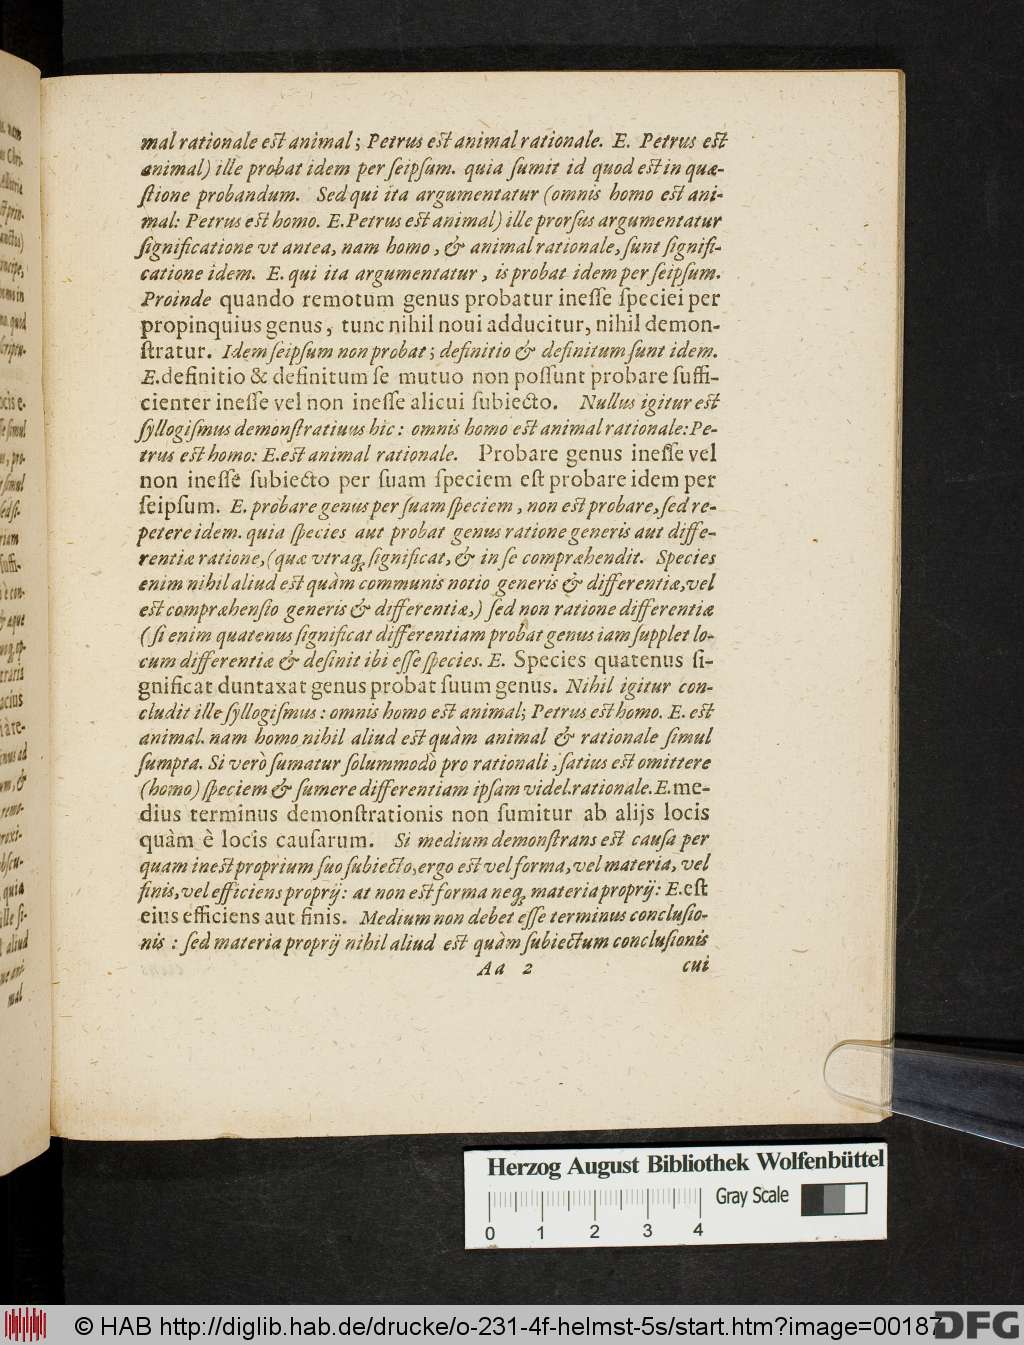 mal rationale est animal; Petrus est animal rationale. E. Petrus est
animal) ille probat idem per ſeipſum. quia ſumit id quod est in quæ-
ſtione probandum. Sed qui ita argumentatur (omnis homo est ani-
mal: Petrus est homo. E. Petrus est animal) ille prorſus argumentatur
ſignificatione vt antea, nam homo, & animal rationale, ſunt ſignifi-
catione idem. E. qui ita argumentatur, is probat idem per ſeipſum.
Proinde quando remotum genus probatur ineſſe ſpeciei per
propinquius genus, tunc nihil noui adducitur, nihil demon-
ſtratur. Idem ſeipſum non probat; definitio & definitum ſunt idem.
E. definitio & definitum ſe mutuo non poſſunt probare ſuffi-
cienter ineſſe vel non ineſſe alicui ſubiecto. Nullus igitur est
ſyllogiſmus demonſtratiuus hic: omnis homo est animal rationale: Pe-
trus est homo: E. est animal rationale. Probare genus ineſſe vel
non ineſſe ſubiecto per ſuam ſpeciem eſt probare idem per
ſeipſum. E. probare genus per ſuam ſpeciem, non est probare, ſed re-
petere idem. quia ſpecies aut probat genus ratione generis aut diffe-
rentiæ ratione, (quæ vtraq; ſignificat, & in ſe compræhendit. Species
enim nihil aliud est quàm communis notio generis & differentiæ, vel
est compræhenſio generis & differentiæ,) ſed non ratione differentiæ
(ſi enim quatenus ſignificat differentiam probat genus iam ſupplet lo-
cum differentiæ & deſinit ibi eſſe ſpecies. E. Species quatenus ſi-
gnificat duntaxat genus probat ſuum genus. Nihil igitur con-
cludit ille ſyllogiſmus: omnis homo est animal; Petrus est homo. E. est
animal. nam homo nihil aliud est quàm animal & rationale ſimul
ſumpta. Si verò ſumatur ſolummodò pro rationali, ſatius est omittere
(homo) ſpeciem & ſumere differentiam ipſam videl. rationale. E. me-
dius terminus demonſtrationis non ſumitur ab alijs locis
quàm è locis cauſarum. Si medium demonſtrans est cauſa per
quam inest proprium ſuo ſubiecto, ergo est vel forma, vel materia, vel
finis, vel efficiens proprij: at non est forma neq; materia proprij: E. eſt
eius efficiens aut finis. Medium non debet eſſe terminus concluſio-
nis: ſed materia proprij nihil aliud est quàm ſubiectum concluſionis
Aa 2 cui
Herzog August Bibliothek Wolfenbüttel
Gray Scale
0 1 2 3 4
© HAB http://diglib.hab.de/drucke/o-231-4f-helmst-5s/start.htm?image=00187
DFG